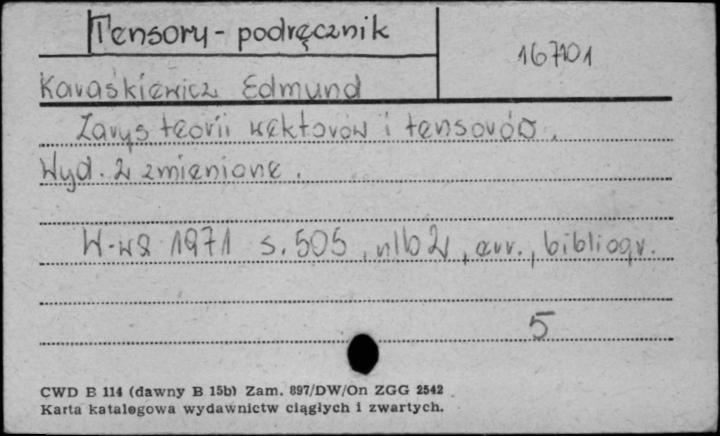 Tensory - podręcznik
167101
Karaśkiewicz Edmund
Zarys teorii wektorów i tensorów.
Wyd. 2 zmienione.
W-wa 1971 s. 505, nlb 2, err., bibliogr.
5
CWD B 114 (dawny B 15b) Zam. 897/DW/On ZGG 2542
Karta katalogowa wydawnictw ciągłych i zwartych.